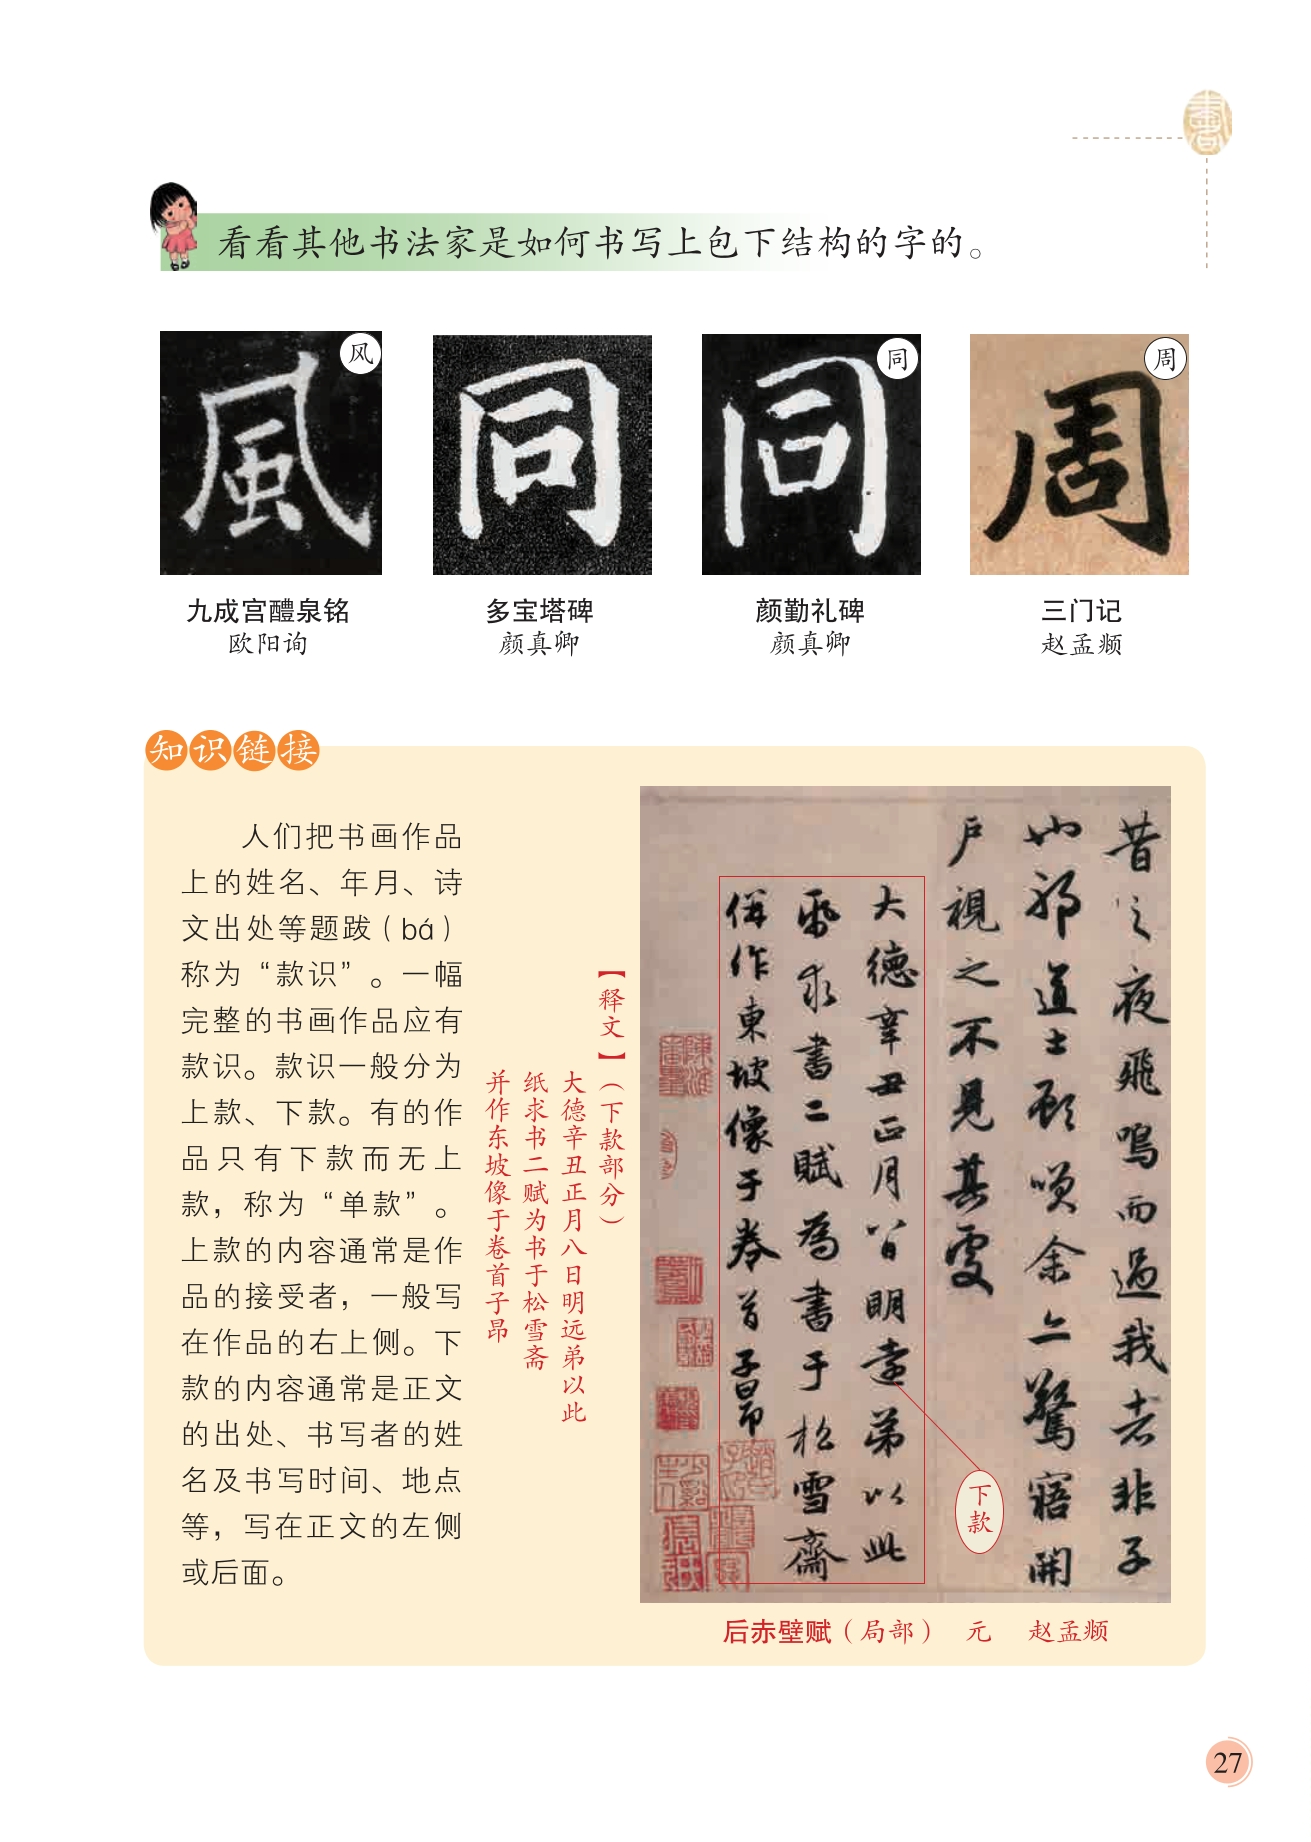 看看其他书法家是如何书写上包下结构的字的。
風
风
同
同
同
周
周
九成宫醴泉铭
欧阳询
多宝塔碑
颜真卿
颜勤礼碑
颜真卿
三门记
赵孟頫
知识链接
人们把书画作品
上的姓名、年月、诗
文出处等题跋（bá）
称为“款识”。一幅
完整的书画作品应有
款识。款识一般分为
上款、下款。有的作
品只有下款而无上
款，称为“单款”。
上款的内容通常是作
品的接受者，一般写
在作品的右上侧。下
款的内容通常是正文
的出处、书写者的姓
名及书写时间、地点
等，写在正文的左侧
或后面。
【释文】（下款部分）
大德辛丑正月八日明远弟以此
纸求书二赋为书于松雪斋
并作东坡像于卷首子昂
昔之夜飛鳴而過我者非子
也邪道士顧唉余亦驚寤開
戶視之不見其處
大德辛丑正月八日明遠弟以此
帋求書二賦為書于松雪齋
併作東坡像于卷首子昂
下款
后赤壁赋（局部） 元 赵孟頫
27